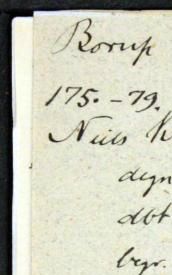 Borup
175. - 79.
Niels K
degn
dbt
begr.